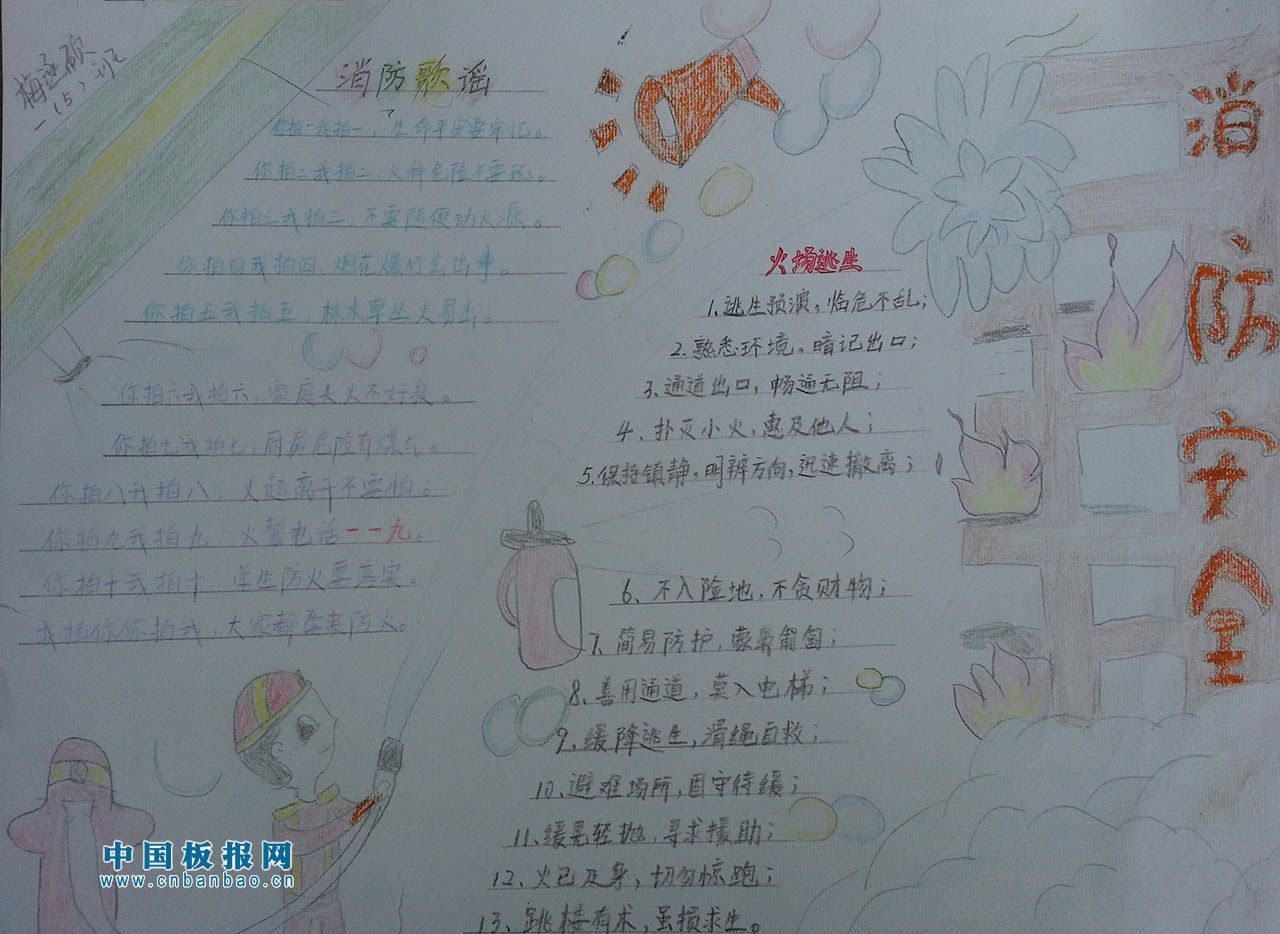 一（5）班
消防歌谣
你拍一我拍一，生命平安要牢记。
你拍二我拍二，火种危险不要玩。
你拍三我拍三，不要随便动火源。
你拍四我拍四，烟花爆竹会出事。
你拍五我拍五，林木草丛火易出。
你拍六我拍六，家庭失火不好救。
你拍七我拍七，厨房危险有煤气。
你拍八我拍八，火起离开不要怕。
你拍九我拍九，火警电话一一九。
你拍十我拍十，学生防火要落实。
我拍你你拍我，大家都要来防火。
火场逃生
1.逃生预演，临危不乱；
2.熟悉环境，暗记出口；
3.通道出口，畅通无阻；
4、扑灭小火，惠及他人；
5.保持镇静，明辨方向，迅速撤离；
6、不入险地，不贪财物；
7、简易防护，蒙鼻匍匐；
8、善用通道，莫入电梯；
9、缓降逃生，滑绳自救；
10、避难场所，固守待缓；
11、缓晃轻抛，寻求援助；
12、火已及身，切勿惊跑；
13、跳楼有术，虽损求生。
消防安全
中国板报网
www.cnbanbao.cn